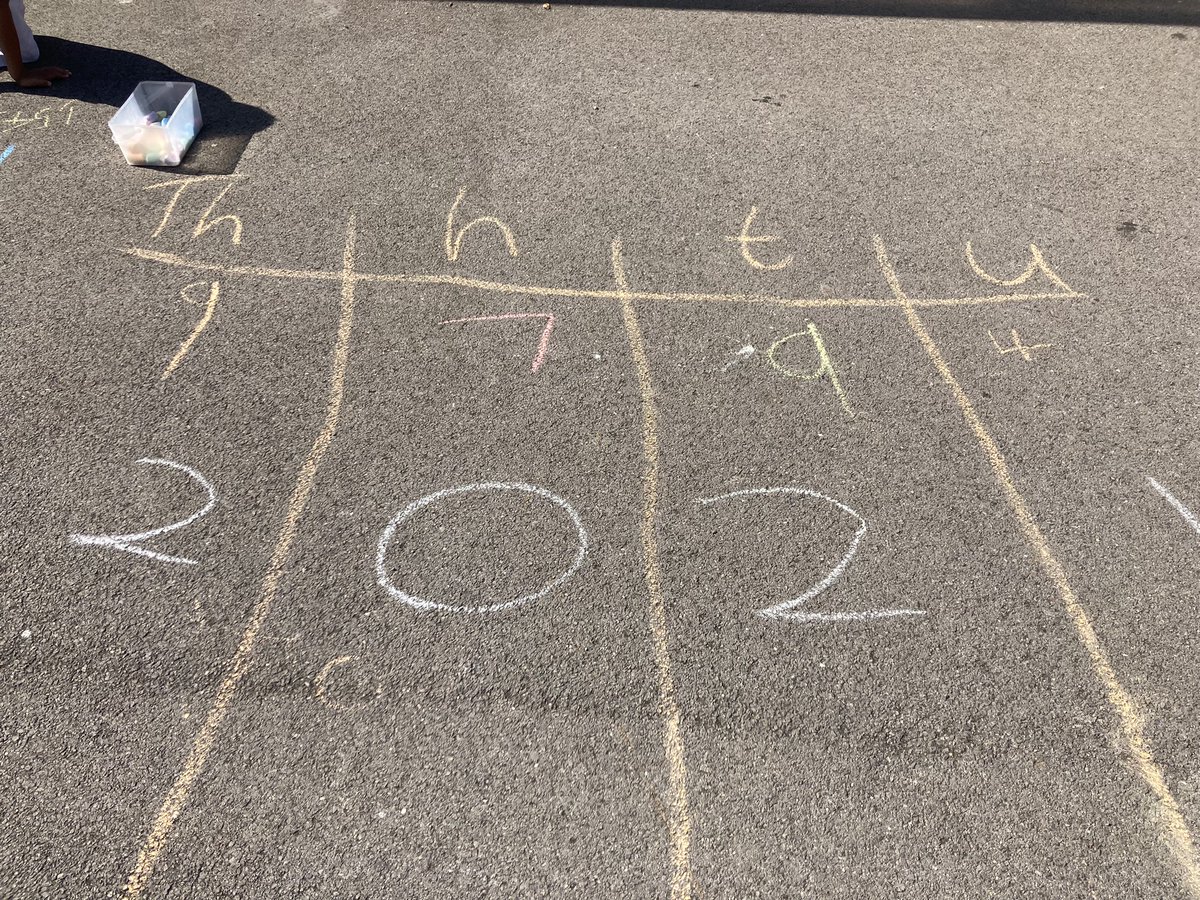 Th h t u
9 7 9 4
2 0 2 1